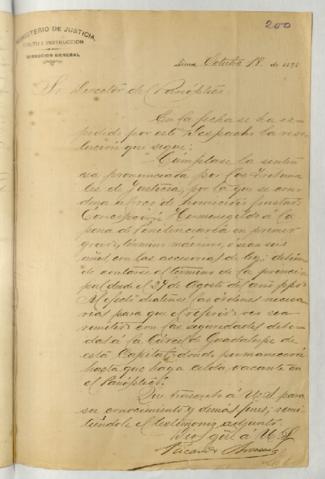 200
MINISTERIO DE JUSTICIA,
CULTO E INSTRUCCION
DIRECCION GENERAL
Lima, Octubre 18 de 189
Sr. Director del Panóptico
En la fecha se ha ex-
pedido por este Despacho la reso-
lución que sigue:
"Cúmplase la senten-
cia pronunciada por los Tribuna-
les de Justicia, por la que se con-
dena al reo de homicidio
Concepción á la
pena de Penitenciaría en primer
grado, término máximo, ó sean seis
años con las accesorias de ley, debien-
do contarse el término de la princi-
pal desde el 27 de Agosto del año ppdo.
Al efecto díctense las órdenes necesa-
rias para que el referido reo sea
remitido con las seguridades debi-
das á la Cárcel de Guadalupe de
esta Capital, donde permanecerá
hasta que haya celda vacante en
el Panóptico."
Que trascribo á U.S. para
su conocimiento y demás fines, remi-
tiéndole el testimonio adjunto.
Dios gue. á U.S.
Ricardo